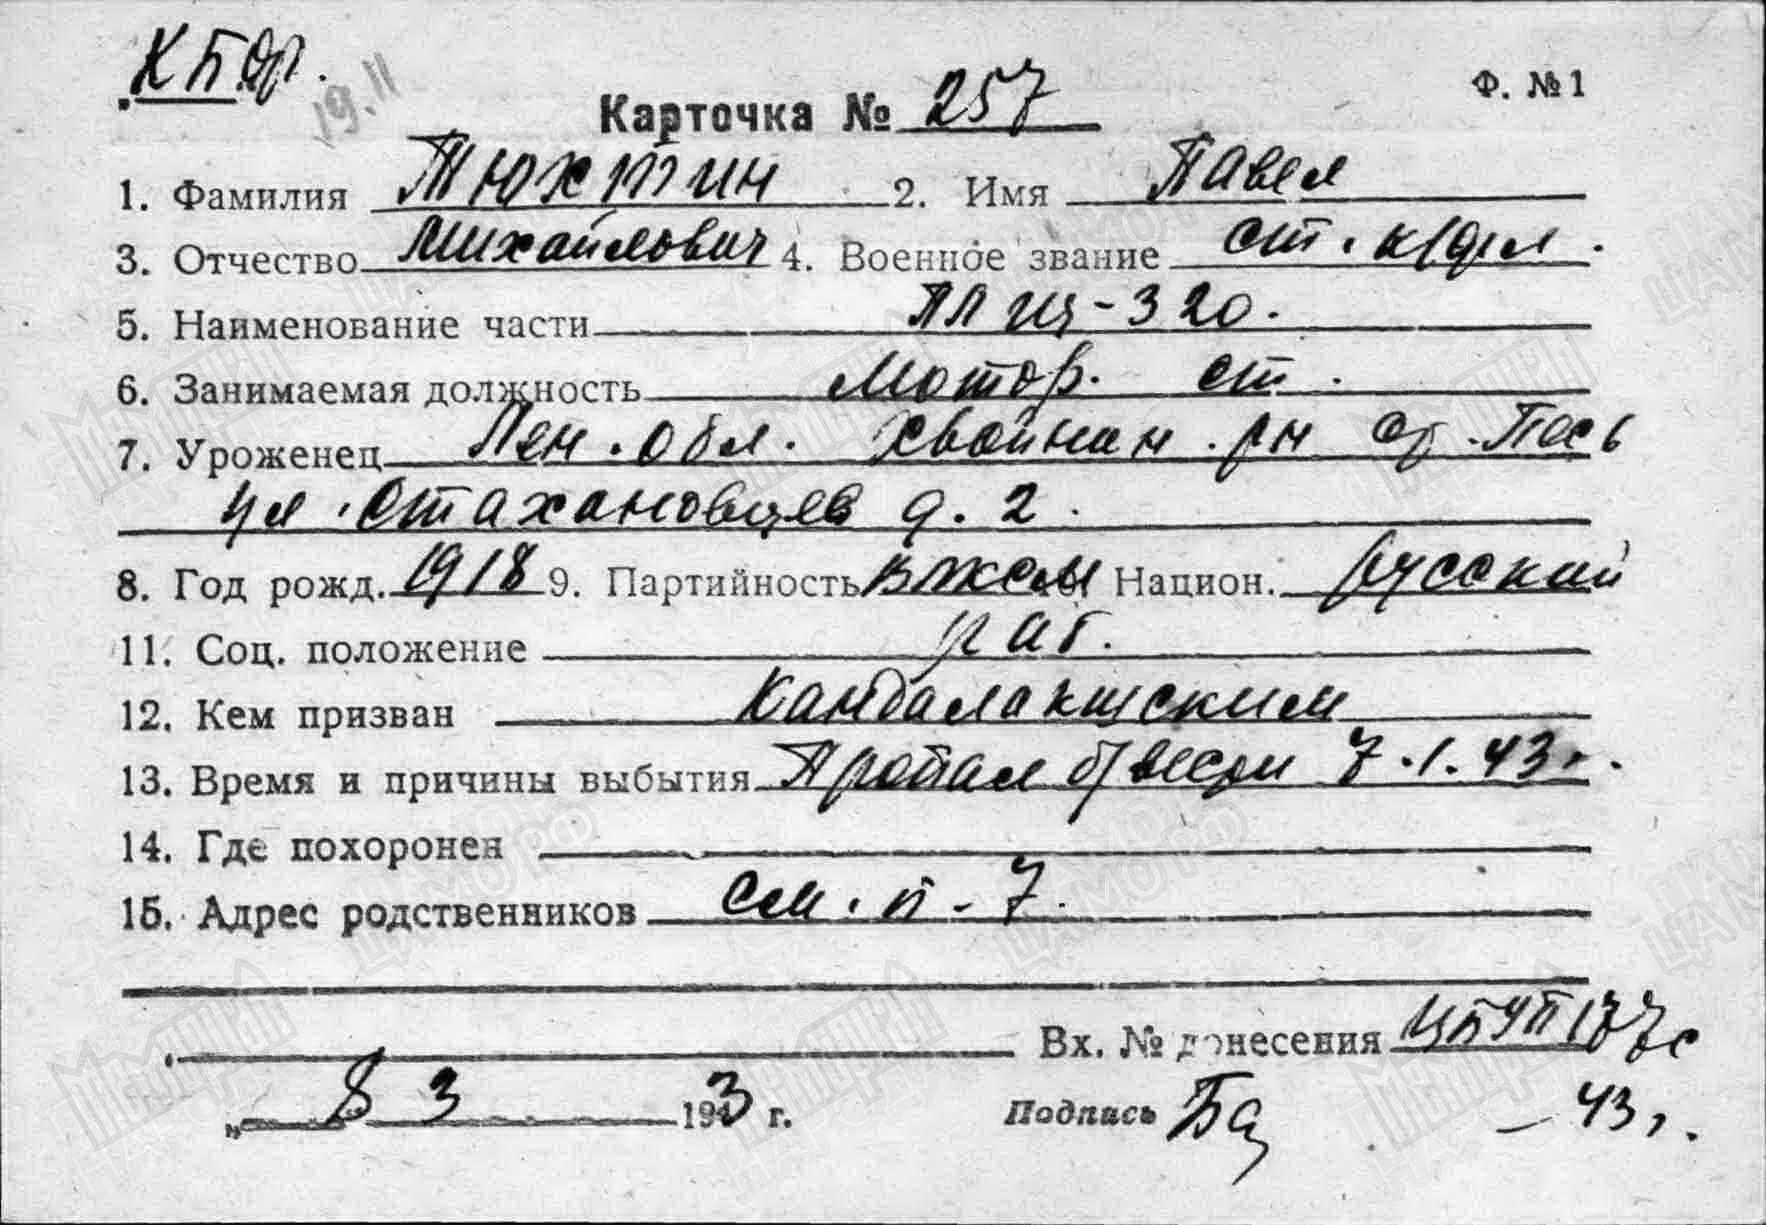 КБФ.
19.11
Ф. №1
Карточка № 257
1. Фамилия Тюхтин 2. Имя Павел
3. Отчество Михайлович 4. Военное звание ст. к/фл.
5. Наименование части ПЛ Щ-320.
6. Занимаемая должность Мотор. ст.
7. Уроженец Лен. обл. Хвойнин. рн ст. Песь
ул. Стахановцев д. 2.
8. Год рожд. 1918 9. Партийность ВЛКСМ Национ. русский
11. Соц. положение раб.
12. Кем призван Кандалакшским
13. Время и причины выбытия Пропал б/вести 7.1.43г.
14. Где похоронен
15. Адрес родственников см. п-7.
Вх. № донесения 177с
„ 8 3 1943 г. Подпись -43г.